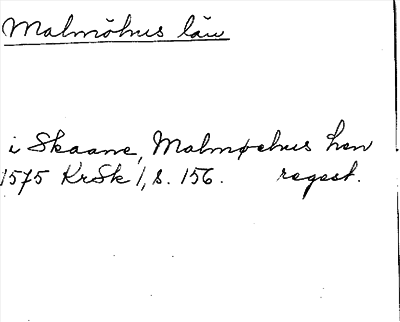 Malmöhus län
i Skaane, Malmøehus hen
1575 KrSk 1, s. 156. regest.